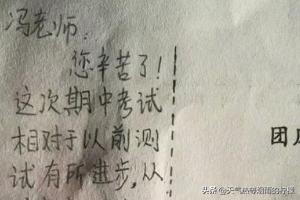 冯老师：
您辛苦了！
这次期中考试
相对于以前测
试有所进步，从
团
头条@天气热得烟雨的柠檬